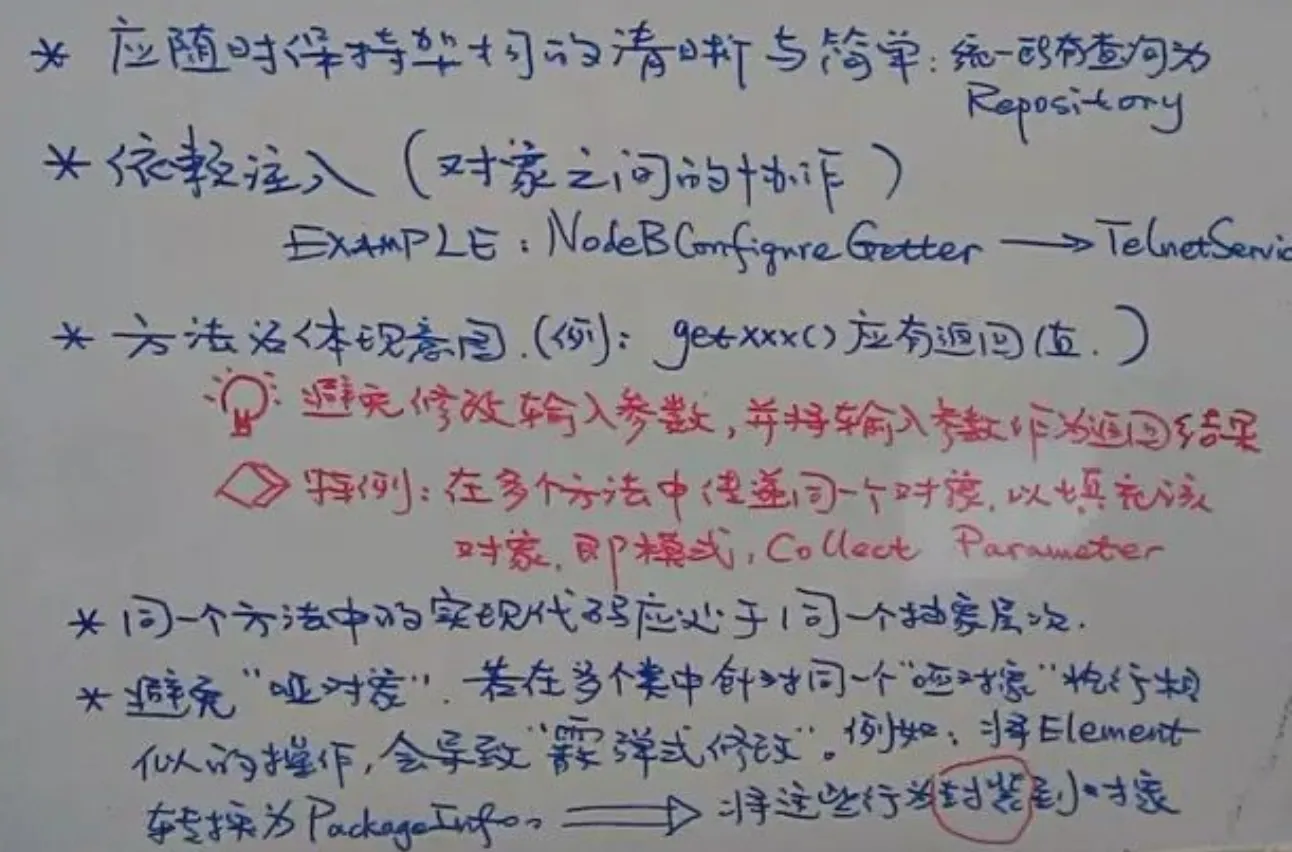 * 应随时保持架构的清晰与简单：统一所有查询为
Repository
* 依赖注入（对象之间的协作）
EXAMPLE：NodeBConfigureGetter → TelnetServic
* 方法名体现意图.（例：getxxx()应有返回值.）
避免修改输入参数，并将输入参数作为返回结果
特例：在多个方法中传递同一个对象，以填充该
对象，即模式，Collect Parameter
* 同一个方法中的实现代码应处于同一个抽象层次.
* 避免"哑对象"．若在多个类中针对同一个"哑对象"执行相
似的操作，会导致"霰弹式修改"。例如：将Element
转换为PackageInfo。⇒ 将这些行为封装到对象